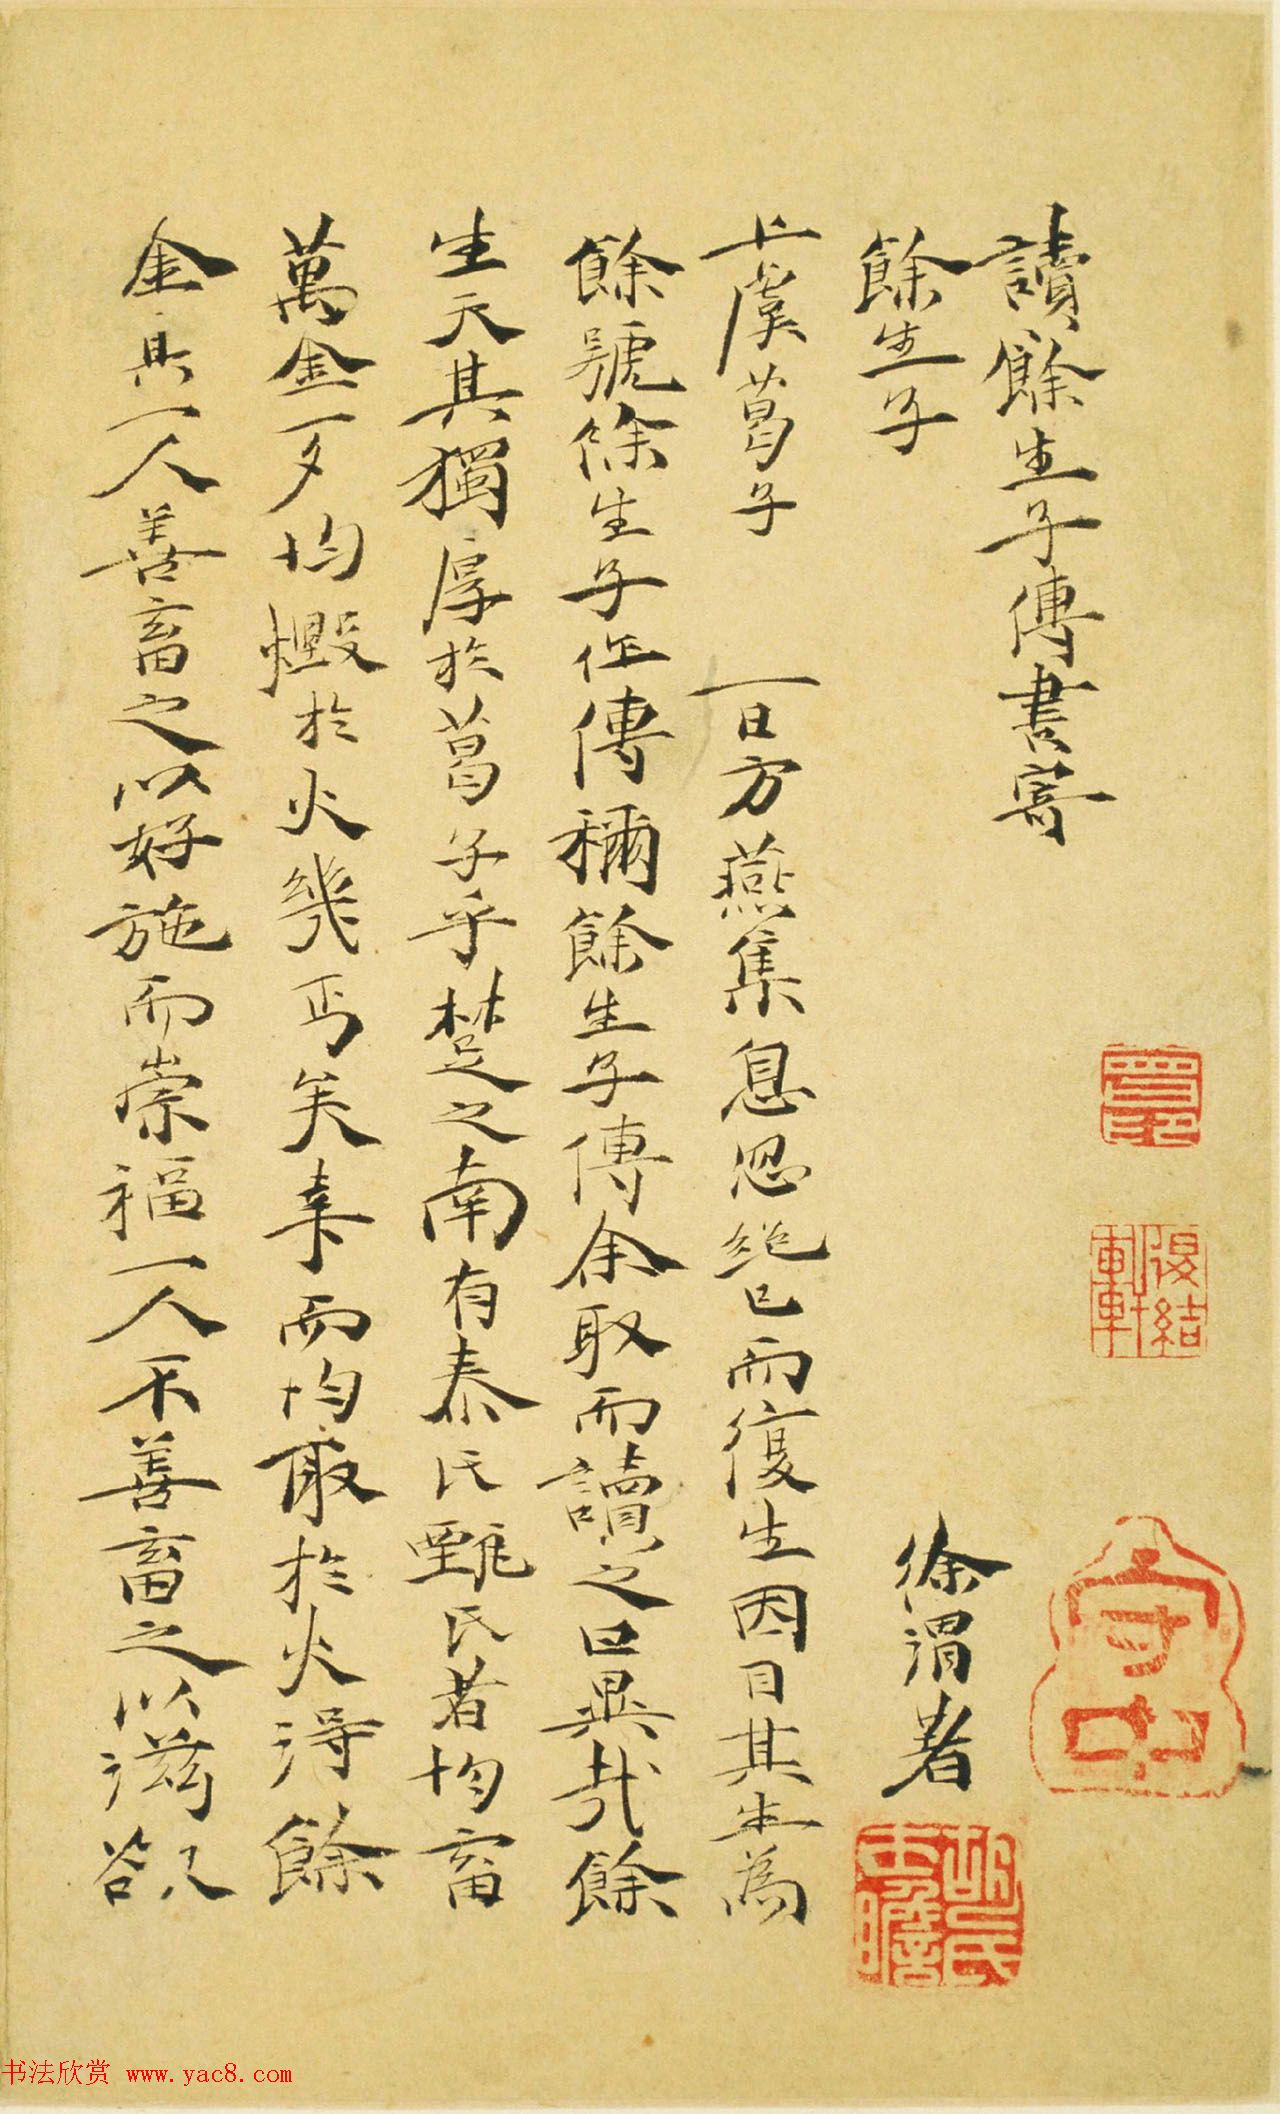 讀餘生子傳書寄
餘生子
徐渭著
上虞葛子 一日方燕集息忽絕已而復生因目其生為
餘號餘生子作傳稱餘生子傳余取而讀之曰異哉餘
生天其獨厚於葛子乎楚之南有秦氏甄氏者均畜
萬金一夕均燬於火幾丐矣幸而均取於火得餘
金具一人善畜之以好施而崇福一人不善畜之以滋欲
守中
復結軒
书法欣赏 www.yac8.com